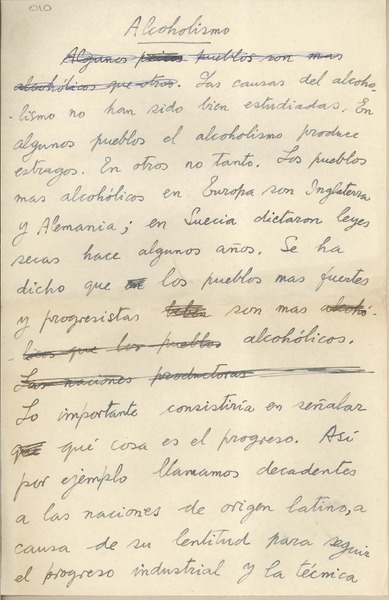 010
Alcoholismo
Algunos paises pueblos son mas
alcohólicos que otros. Las causas del alcoho-
-lismo no han sido bien estudiadas. En
algunos pueblos el alcoholismo produce
estragos. En otros no tanto. Los pueblos
mas alcohólicos en Europa son Inglaterra
y Alemania; en Suecia dictaron leyes
secas hace algunos años. Se ha
dicho que en los pueblos mas fuertes
y progresistas beben son mas alcohó-
-licos que los pueblos alcohólicos.
Las naciones productoras
Lo importante consistiría en señalar
que qué cosa es el progreso. Así
por ejemplo llamamos decadentes
a las naciones de origen latino, a
causa de su lentitud para seguir
el progreso industrial y la técnica